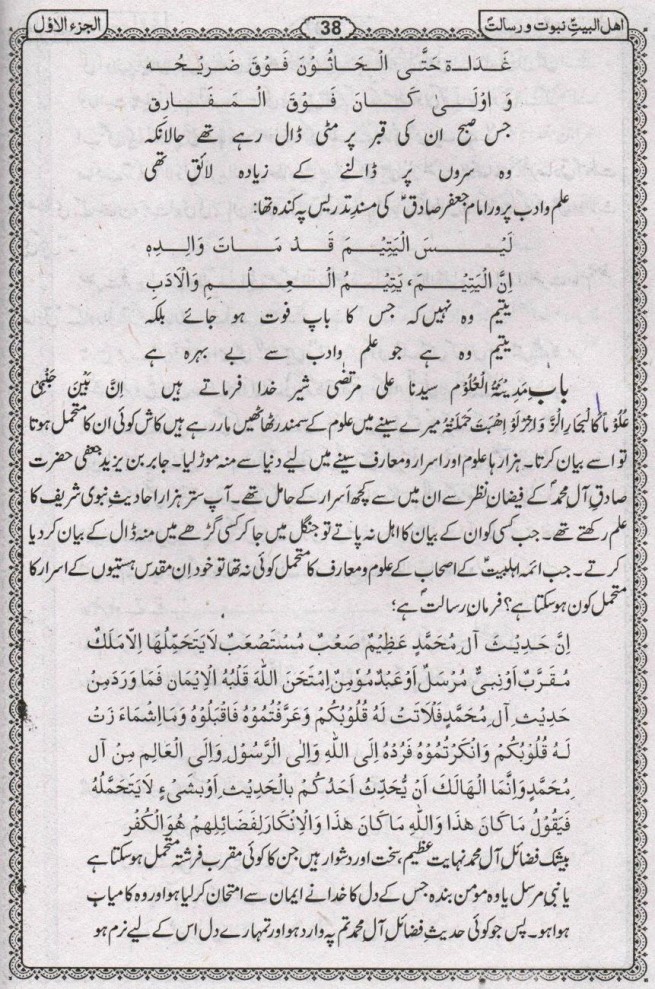 اھل البیتِؑ نبوت و رسالتؐ
38
الجزء الاوّل
غَدَاة حَتَّى الْحَاثُوْنَ فَوْقَ ضَرِيْحُـ
وَ اَوْلٰى كَانَ فَوْقَ الْمَفَارِق
جس صبح ان کی قبر پر مٹی ڈال رہے تھے حالانکہ
وہ سروں پر ڈالنے کے زیادہ لائق تھی
علم و ادب پرور امام جعفر صادقؑ کی مسندِ تدریس پہ کندہ تھا:
لَيْسَ الْيَتِيْمَ قَدْ مَاتَ وَالِدِهٖ
اِنَّ الْيَتِيْمَ، يَتِيْمُ الْعِلْمِ وَالْاَدَبِ
یتیم وہ نہیں کہ جس کا باپ فوت ہو جائے بلکہ
یتیم وہ ہے جو علم و ادب سے بے بہرہ ہے
بابِ مَدِیْنَۃُ الْعُلُوْم سیدنا علی مرتضیٰ شیر خدا فرماتے ہیں اِنَّ بَیْنَ جَنْبَیَّ
عُلُوْمًا کَالْبَحَارِ الزَّوَاخِرْ لَوْ میرے سینے میں علوم کے سمندر ٹھاٹھیں مار رہے ہیں کاش کوئی ان کا متحمل ہوتا
تو اسے بیان کرتا۔ ہزار ہا علوم اور اسرار و معارف سینے میں لیے دنیا سے منہ موڑ لیا۔ جابر بن یزید جعفی حضرت
صادقِ آلِ محمدؐ کے فیضانِ نظر سے ان میں سے کچھ اَسرار کے حامل تھے۔ آپ ستر ہزار احادیثِ نبوی شریف کا
علم رکھتے تھے۔ جب کسی کو ان کے بیان کا اہل نہ پاتے تو جنگل میں جا کر کسی گڑھے میں منہ ڈال کے بیان کر دیا
کرتے۔ جب ائمہ اہلبیتؑ کے اصحاب کے علوم و معارف کا متحمل کوئی نہ تھا تو خود اِن مقدس ہستیوں کے اسرار کا
متحمل کون ہو سکتا ہے؟ فرمانِ رسالتؐ ہے؛
اِنَّ حَدِيْثَ آلِ مُحَمَّدٍ عَظِيْمٌ صَعْبٌ مُسْتَصْعَبٌ لَايَتَحَمَّلُهَا اِلَّا مَلَكٌ
مُقَرَّبٌ اَوْنَبِىٌّ مُرْسَلٌ اَوْعَبْدٌ مُؤْمِنٌ اِمْتَحَنَ اللّٰهُ قَلْبُهُ الْاِيْمَانِ فَمَا وَرَدَمِنْ
حَدِيْثِ آلِ مُحَمَّدٍ فَلَاَنَتْ لَهُ قُلُوْبُكُمْ وَعَرَّفْتُمُوْهُ فَاقْبَلُوْهُ وَمَا اِشْمَاءَ زَتْ
لَهُ قُلُوْبُكُمْ وَانْكَرْتُمُوْهُ فَرَدُهُ اِلَى اللّٰهِ وَاِلَى الرَّسُوْلِ وَاِلَى الْعَالِمِ مِنْ آلِ
مُحَمَّدٍ وَاِنَّمَا الْهَالَكَ اَنْ يُحَدِّثَ اَحَدُكُمْ بِالْحَدِيْثِ اَوْبِشَیْءٍ لَايَتَحَمَّلُهُ
فَيَقُوْلُ مَا كَانَ هٰذَا وَاللّٰهِ مَا كَانَ هٰذَا وَالْاِنْكَارُ لِفَضَائِلِهِمْ هُوَالْكُفْرُ
بیشک فضائلِ آلِ محمد نہایت عظیم، سخت اور دشوار ہیں جن کا کوئی مقرب فرشتہ متحمل ہو سکتا ہے
یا نبی مرسل یا وہ مومن بندہ جس کے دل کا خدا نے ایمان سے امتحان کر لیا ہو اور وہ کامیاب
ہوا ہو۔ پس جو کوئی حدیثِ فضائلِ آلِ محمد تم پہ وارد ہو اور تمہارے دل اس کے لیے نرم ہو